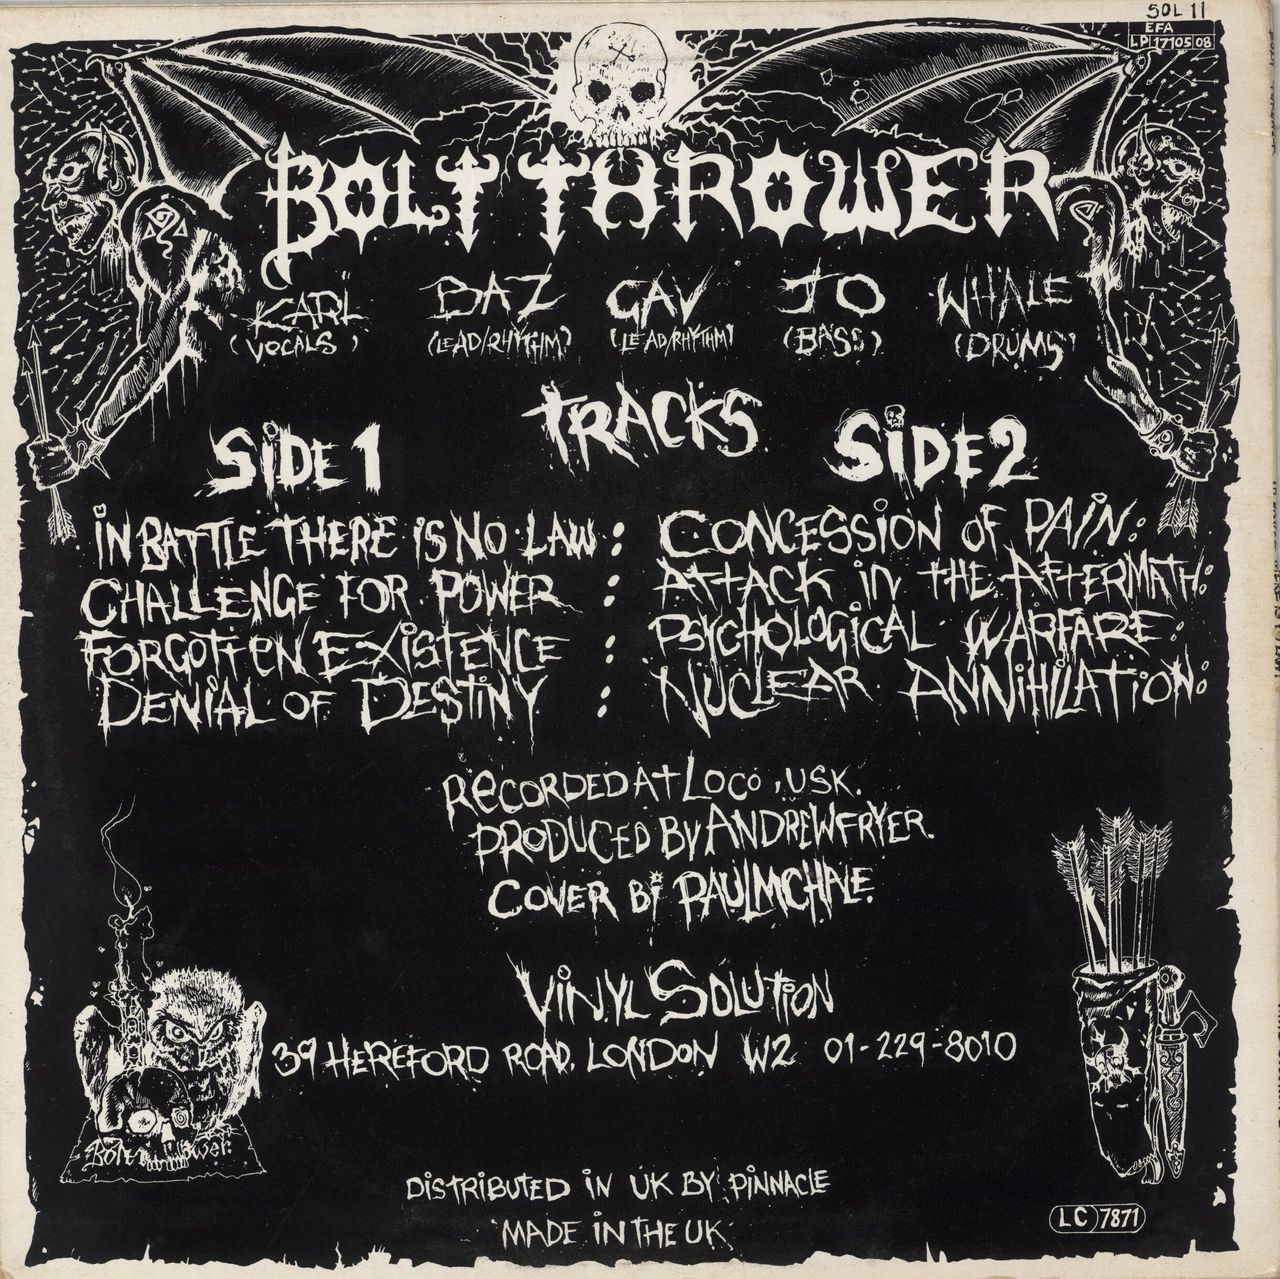 SOL 11
EFA
LP 17105 08
BOLT THROWER
KARL BAZ GAV JO WHALE
(VOCALS) (LEAD/RHYTHM) (LEAD/RHYTHM) (BASS) (DRUMS)
TRACKS
SIDE 1 SIDE 2
IN BATTLE THERE IS NO LAW: CONCESSION OF PAIN:
CHALLENGE FOR POWER : ATTACK IN THE AFTERMATH:
FORGOTTEN EXISTENCE : PSYCHOLOGICAL WARFARE:
DENIAL OF DESTINY : NUCLEAR ANNIHILATION:
RECORDED AT LOCO, USK.
PRODUCED BY ANDREW FRYER.
COVER BI PAUL MCHALE.
VINYL SOLUTION
39 HEREFORD ROAD. LONDON W2 01-229-8010
DISTRIBUTED IN UK BY PINNACLE
MADE IN THE UK
LC 7871